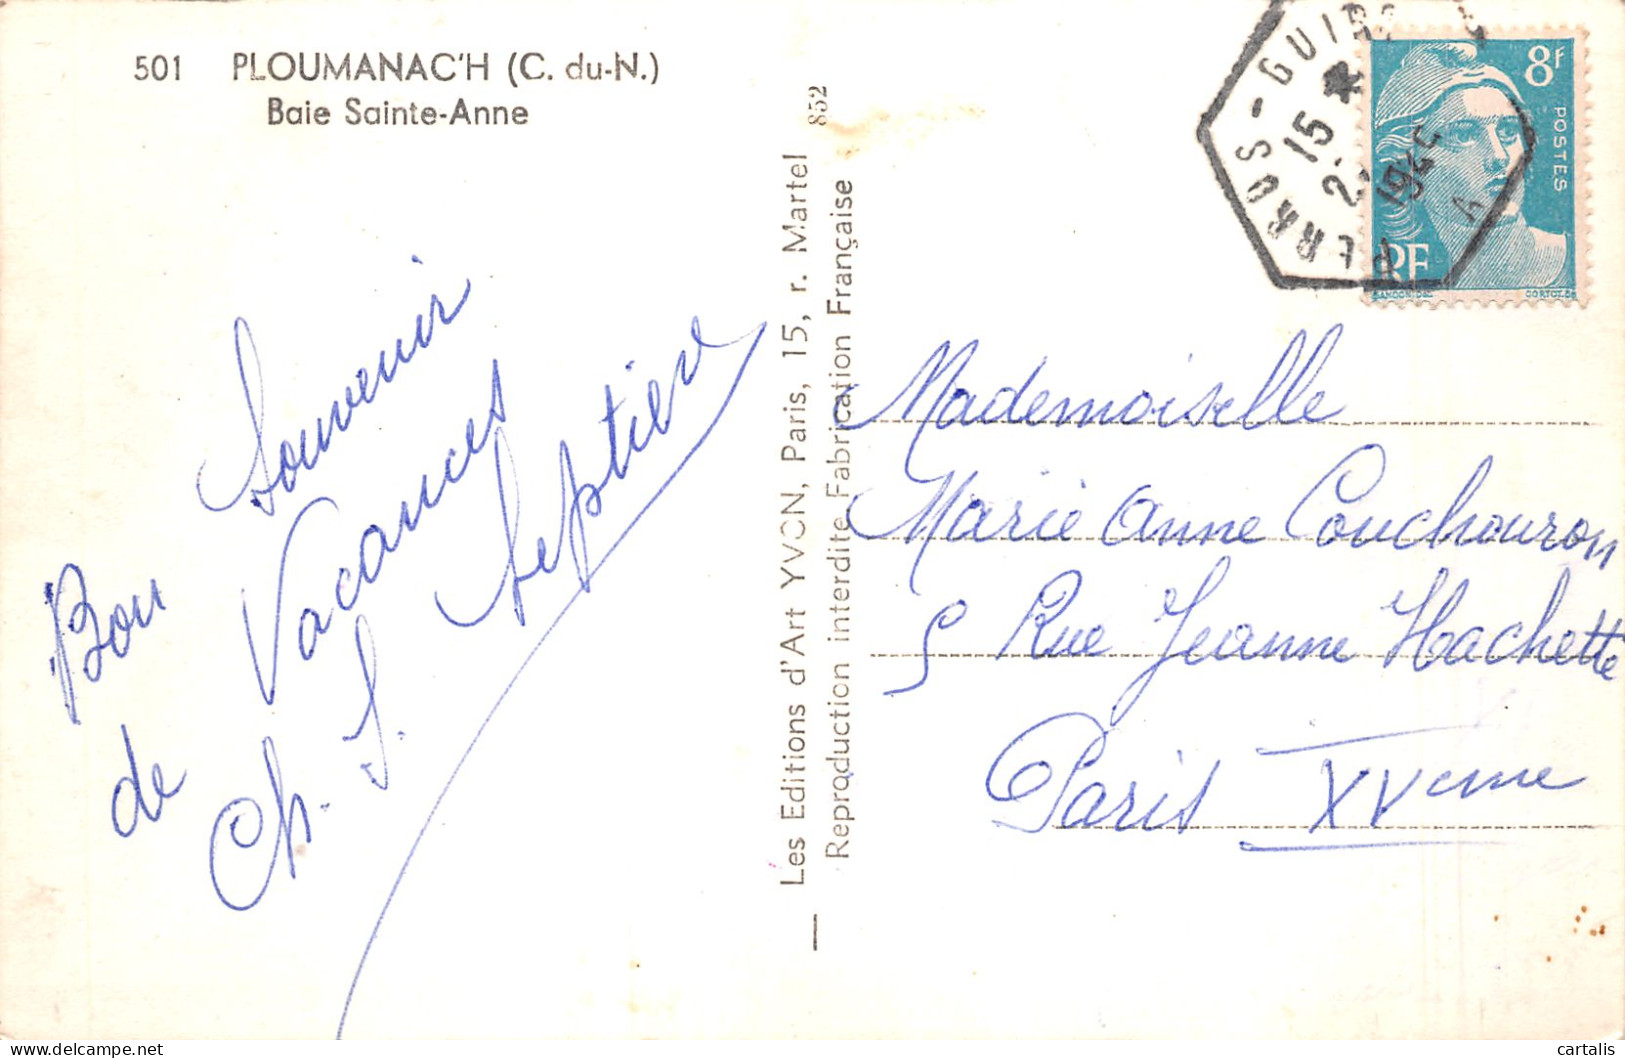 501 PLOUMANAC'H (C. du-N.)
Baie Sainte-Anne
Bon Souvenir
de Vacances
Ch. L. Septiere
852
Les Editions d'Art YVON, Paris, 15, r. Martel
Reproduction interdite Fabrication Française
PERROS-GUIREC
15 *
2
19
A
8F
POSTES
RF
GANDON DEL.
CORTOT SC.
Mademoiselle
Marie Anne Couchouron
5 Rue Jeanne Hachette
Paris XVeme
cartalis